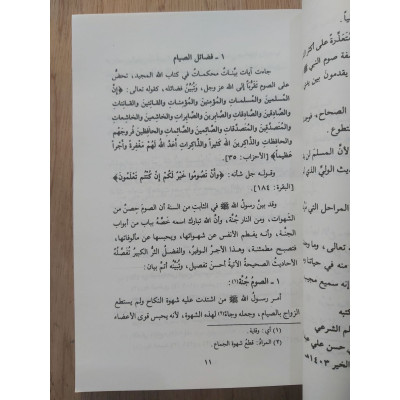 ١ - فضائل الصيام
جاءت آيات بيِّناتٌ محكماتٌ في كتاب الله المجيد، تحضُّ
على الصوم تقرُّباً إلى الله عز وجل، وتُبيِّن فضائله، كقوله تعالى: ﴿إنَّ
المُسلمينَ والمُسلماتِ والمُؤمنينَ والمُؤمناتِ والقانِتينَ والقانِتاتِ
والصَّادِقينَ والصَّادِقاتِ والصَّابِرينَ والصَّابِراتِ والخاشِعينَ والخاشِعاتِ
والمُتصدِّقينَ والمُتصدِّقاتِ والصَّائِمينَ والصَّائِماتِ والحافِظينَ فُروجَهُم
والحافِظاتِ والذَّاكِرينَ اللهَ كثيراً والذَّاكِراتِ أعدَّ اللهُ لَهُم مَغفرةً وأجراً
عَظيماً﴾ [الأحزاب: ٣٥].
وقوله جل شأنه: ﴿وأنْ تَصُومُوا خَيْرٌ لَكُمْ إنْ كُنْتُم تَعْلَمُونَ﴾
[البقرة: ١٨٤].
وقد بيَّن رسولُ الله ﷺ في الثابت من السنة أن الصومَ حِصنٌ من
الشهوات، ومن النار جُنَّةٌ، وأنَّ الله تبارك اسمه خَصَّهُ بباب من أبواب
الجنة، وأنه يفطم الأنفس عن شهواتها، ويحبسها عن مألوفاتها،
فتصبح مطمئنة، وهذا الأجرُ الوفيرُ، والفضلُ الثرُّ الكبيرُ تُفصِّلُهُ
الأحاديثُ الصحيحةُ الآتيةُ أحسنَ تفصيل، وتُبيِّنُه أتمَّ بيان:
١ - الصومُ جُنَّةٌ(١):
أمر رسولُ الله ﷺ من اشتدت عليه شهوة النكاح ولم يستطع
الزواج بالصيام، وجعله وجاءً(٢) لهذه الشهوة، لأنه يحبس قوى الأعضاء
(١) أي: وقاية.
(٢) المرادُ: قطعُ شهوة الجماع.
١١
الصحاح،
تعالى، وما
كتبه
الخير ١٤٠٣